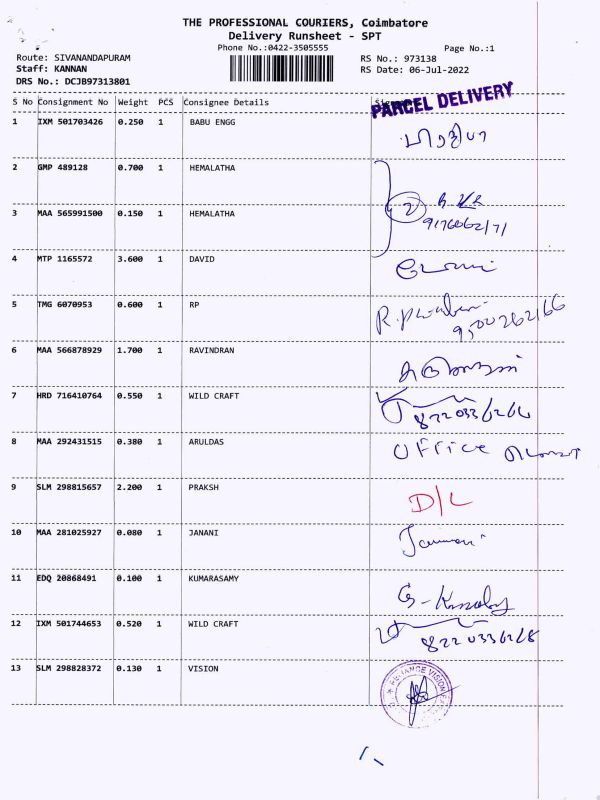 THE PROFESSIONAL COURIERS, Coimbatore
Delivery Runsheet - SPT
Phone No.:0422-3505555
Page No.:1
Route: SIVANANDAPURAM
RS No.: 973138
Staff: KANNAN
RS Date: 06-Jul-2022
DRS No.: DCJB97313801
S No Consignment No Weight PCS Consignee Details
PARCEL DELIVERY
1 IXM 501703426 0.250 1 BABU ENGG
2 GMP 489128 0.700 1 HEMALATHA
2
3 MAA 565991500 0.150 1 HEMALATHA
4 MTP 1165572 3.600 1 DAVID
5 TMG 6070953 0.600 1 RP
6 MAA 566878929 1.700 1 RAVINDRAN
7 HRD 716410764 0.550 1 WILD CRAFT
8 MAA 292431515 0.380 1 ARULDAS
Office
9 SLM 298815657 2.200 1 PRAKSH
D/L
10 MAA 281025927 0.080 1 JANANI
11 EDQ 20868491 0.100 1 KUMARASAMY
12 IXM 501744653 0.520 1 WILD CRAFT
13 SLM 298828372 0.130 1 VISION